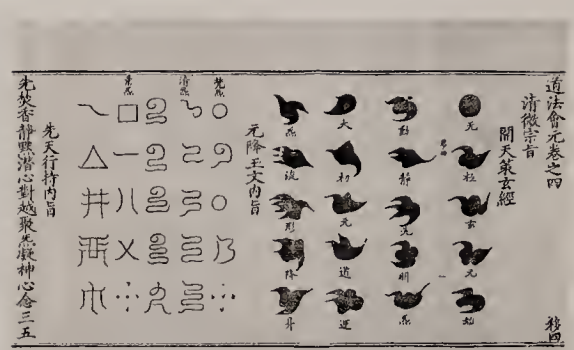 道法會元卷之四 移四
清微宗旨
開天策玄經
无 極 玄 元 始
動 靜 明 炁
大 初 元 道 運
炁 形 降 升
元降玉文内旨
梵炁
清炁
先天行持内旨
先焚香靜默潛心對越聚炁凝神心念三五